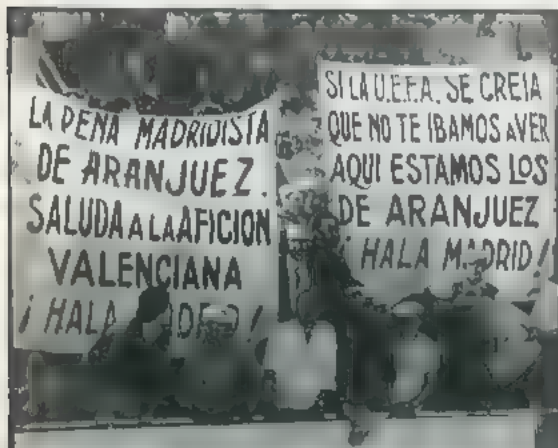 LA PEÑA MADRIDISTA
DE ARANJUEZ.
SALUDA A LA AFICION
VALENCIANA
¡ HALA
SI LA U.E.F.A. SE CREIA
QUE NO TE IBAMOS A VER
AQUI ESTAMOS LOS
DE ARANJUEZ
¡ HALA MADRID !